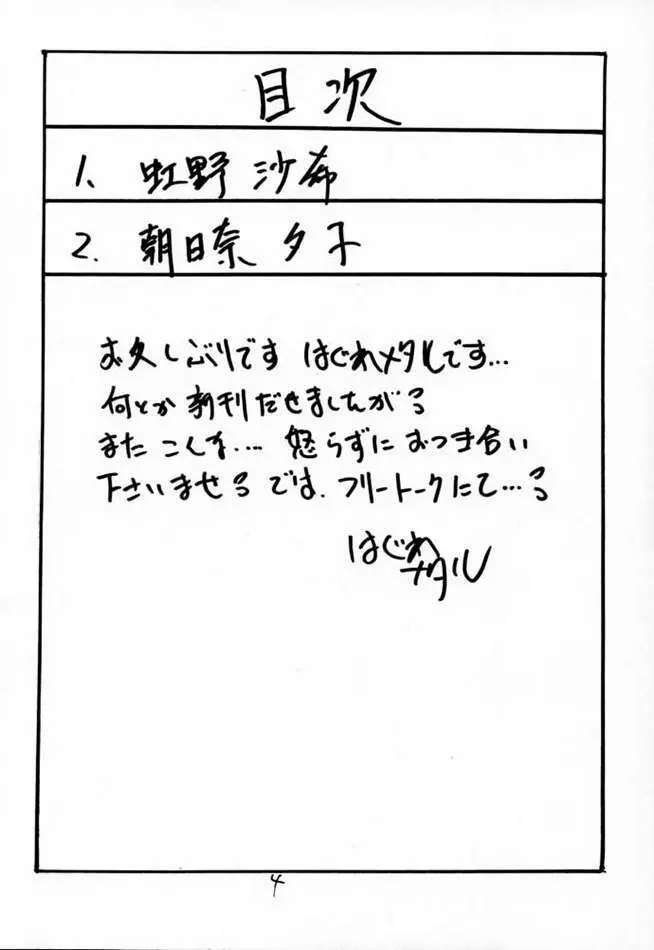 目次
1. 虹野 沙希
2. 朝日奈 夕子
お久しぶりです はぐれメタルです…
何とか新刊だせましたがろ
また こんな…. 怒らずに おつき合い
下さいませろ では. フリートークにて…ろ
はぐれ
メタル
4